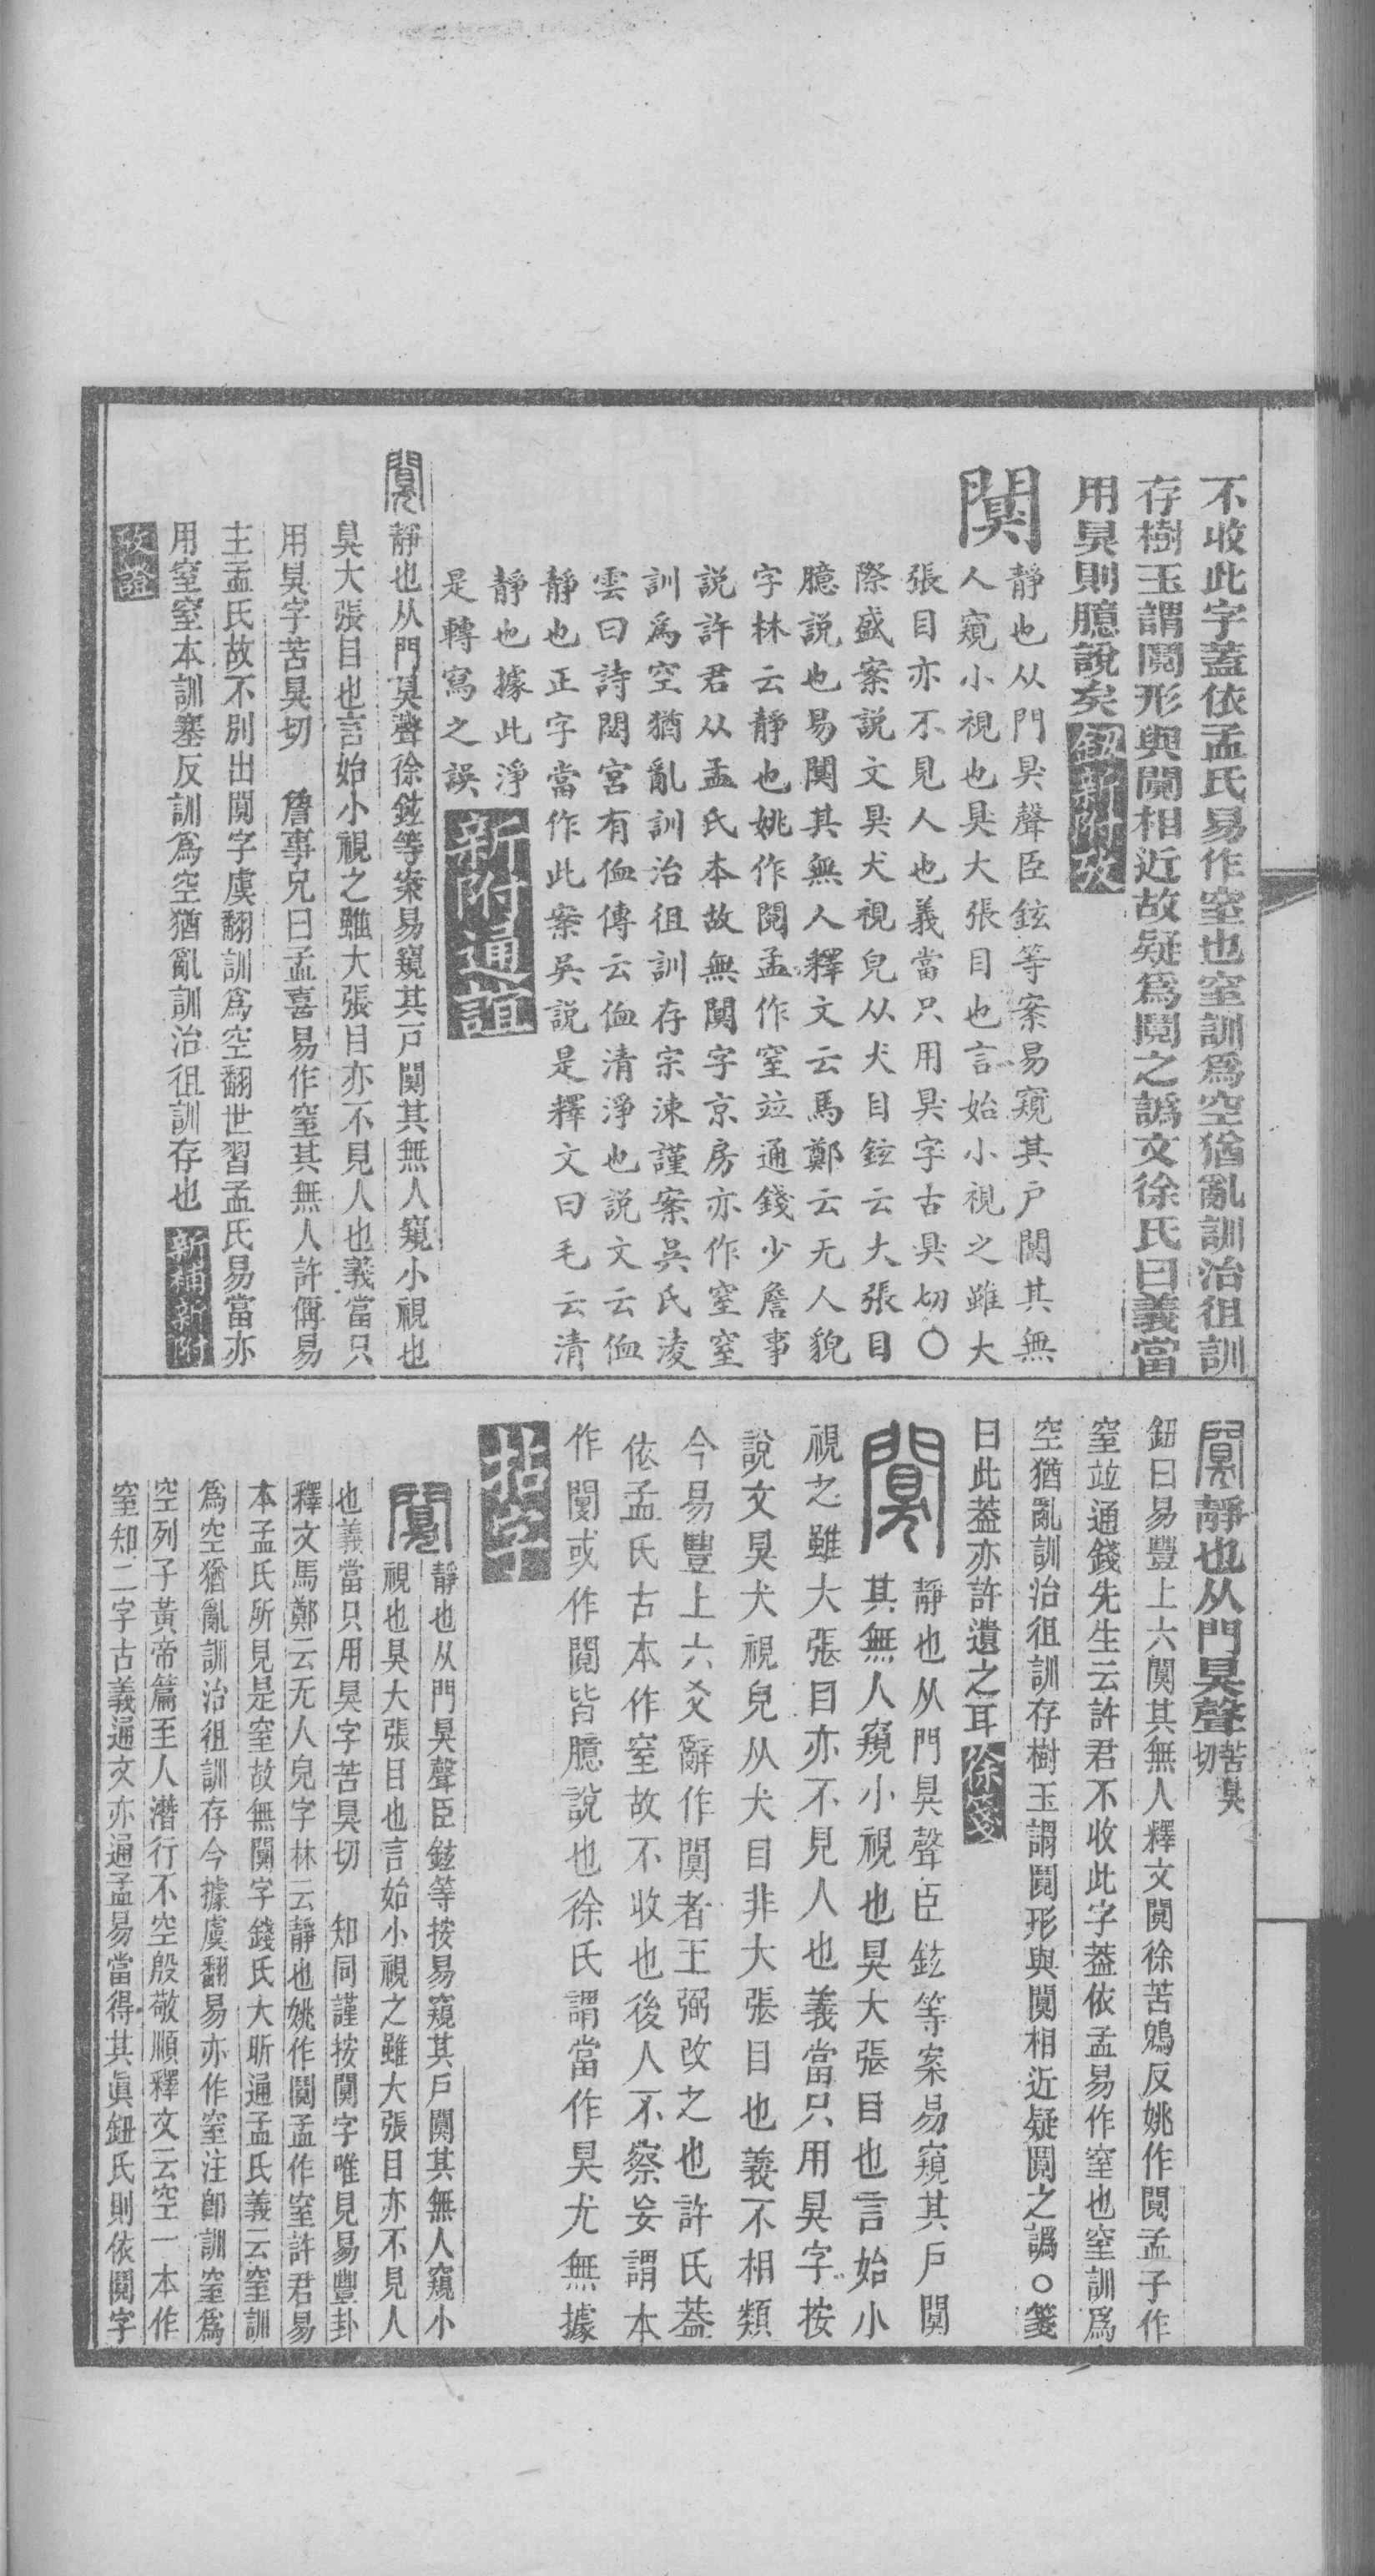 不收此字蓋依孟氏易作窒也窒訓爲空猶亂訓治徂訓
存樹玉謂䦧形與闃相近故疑爲䦧之譌文徐氏曰義當
用狊則臆說矣 鈕新附攷
闃
靜也从門狊聲臣鉉等案易窺其户闃其無
人窺小視也狊大張目也言始小視之雖大
張目亦不見人也義當只用狊字古狊切〇
際盛案説文狊犬視皃从犬目鉉云大張目
臆説也易闃其無人釋文云馬鄭云无人貌
字林云靜也姚作䦧孟作窒竝通錢少詹事
説許君从孟氏本故無闃字京房亦作窒窒
訓爲空猶亂訓治徂訓存宗涑謹案吳氏淩
雲曰詩閟宮有侐傳云侐清淨也説文云侐
靜也正字當作此案吳説是釋文曰毛云清
靜也據此淨
是轉寫之誤 新附通誼
闃 靜也从門狊聲徐鉉等案易窺其户闃其無人窺小視也
狊大張目也言始小視之雖大張目亦不見人也義當只
用狊字苦狊切 詹事兄曰孟喜易作窒其無人許偁易
主孟氏故不別出闃字虞翻訓爲空翻世習孟氏易當亦
用窒窒本訓塞反訓爲空猶亂訓治徂訓存也 新補新附
攷證
闃 靜也从門狊聲苦狊切
鈕曰易豐上六闃其無人釋文闃徐苦鵙反姚作䦧孟子作
窒竝通錢先生云許君不收此字葢依孟易作窒也窒訓爲
空猶亂訓治徂訓存樹玉謂䦧形與闃相近疑䦧之譌〇箋
曰此葢亦許遺之耳 徐箋
闃
靜也从門狊聲臣鉉等案易窺其戶闃
其無人窺小視也狊大張目也言始小
視之雖大張目亦不見人也義當只用狊字按
說文狊犬視皃从犬目非大張目也義不相類
今易豐上六爻辭作闃者王弼改之也許氏葢
依孟氏古本作窒故不收也後人不察妄謂本
作䦧或作闃皆臆說也徐氏謂當作狊尤無據
拈字
闃
靜也从門狊聲臣鉉等按易窺其戶闃其無人窺小
視也狊大張目也言始小視之雖大張目亦不見人
也義當只用狊字苦狊切 知同謹按闃字唯見易豐卦
釋文馬鄭云无人皃字林云靜也姚作䦧孟作窒許君易
本孟氏所見是窒故無闃字錢氏大昕通孟氏義云窒訓
爲空猶亂訓治徂訓存今據虞翻易亦作窒注卽訓窒爲
空列子黃帝篇至人潛行不空殷敬順釋文云空一本作
窒知二字古義通文亦通孟易當得其眞鈕氏則依䦧字